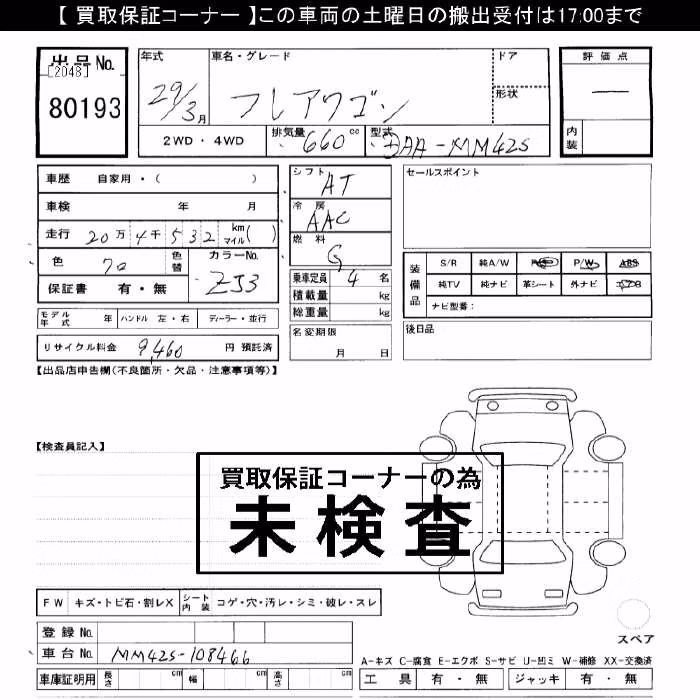 【 買取保証コーナー 】この車両の土曜日の搬出受付は17:00まで
出品No.
[2048]
80193
年式
29/3月
車名・グレード
フレアワゴン
ドア
形状
評価点
―
内装
2WD・4WD
排気量 660cc
型式 DAA-MM42S
車歴 自家用・( )
車検 年 月
走行 20万4千532 km マイル( )
色 70 色替
カラーNo. ZJ3
保証書 有・無
シフト AT
冷房 AAC
燃料 G
乗車定員 4名
積載量 kg
総重量 kg
セールスポイント
装備品
S/R 純A/W P/S P/W ABS
純TV 純ナビ 革シート 外ナビ エアB
ナビ型番:
モデル年式 年 ハンドル 左・右 ディーラー・並行
名変期限
月 日
後日品
リサイクル料金 9,460 円 預託済
【出品店申告欄(不良箇所・欠品・注意事項等)】
【検査員記入】
買取保証コーナーの為
未検査
FW キズ・トビ石・割レX シート内装 コゲ・穴・汚レ・シミ・破レ・スレ
スペア
登録No.
車台No. MM42S-108466
車庫証明用 長さ cm 幅 cm 高さ cm
A-キズ C-腐食 E-エクボ S-サビ U-凹ミ W-補修 XX-交換済
工具 有・無 ジャッキ 有・無